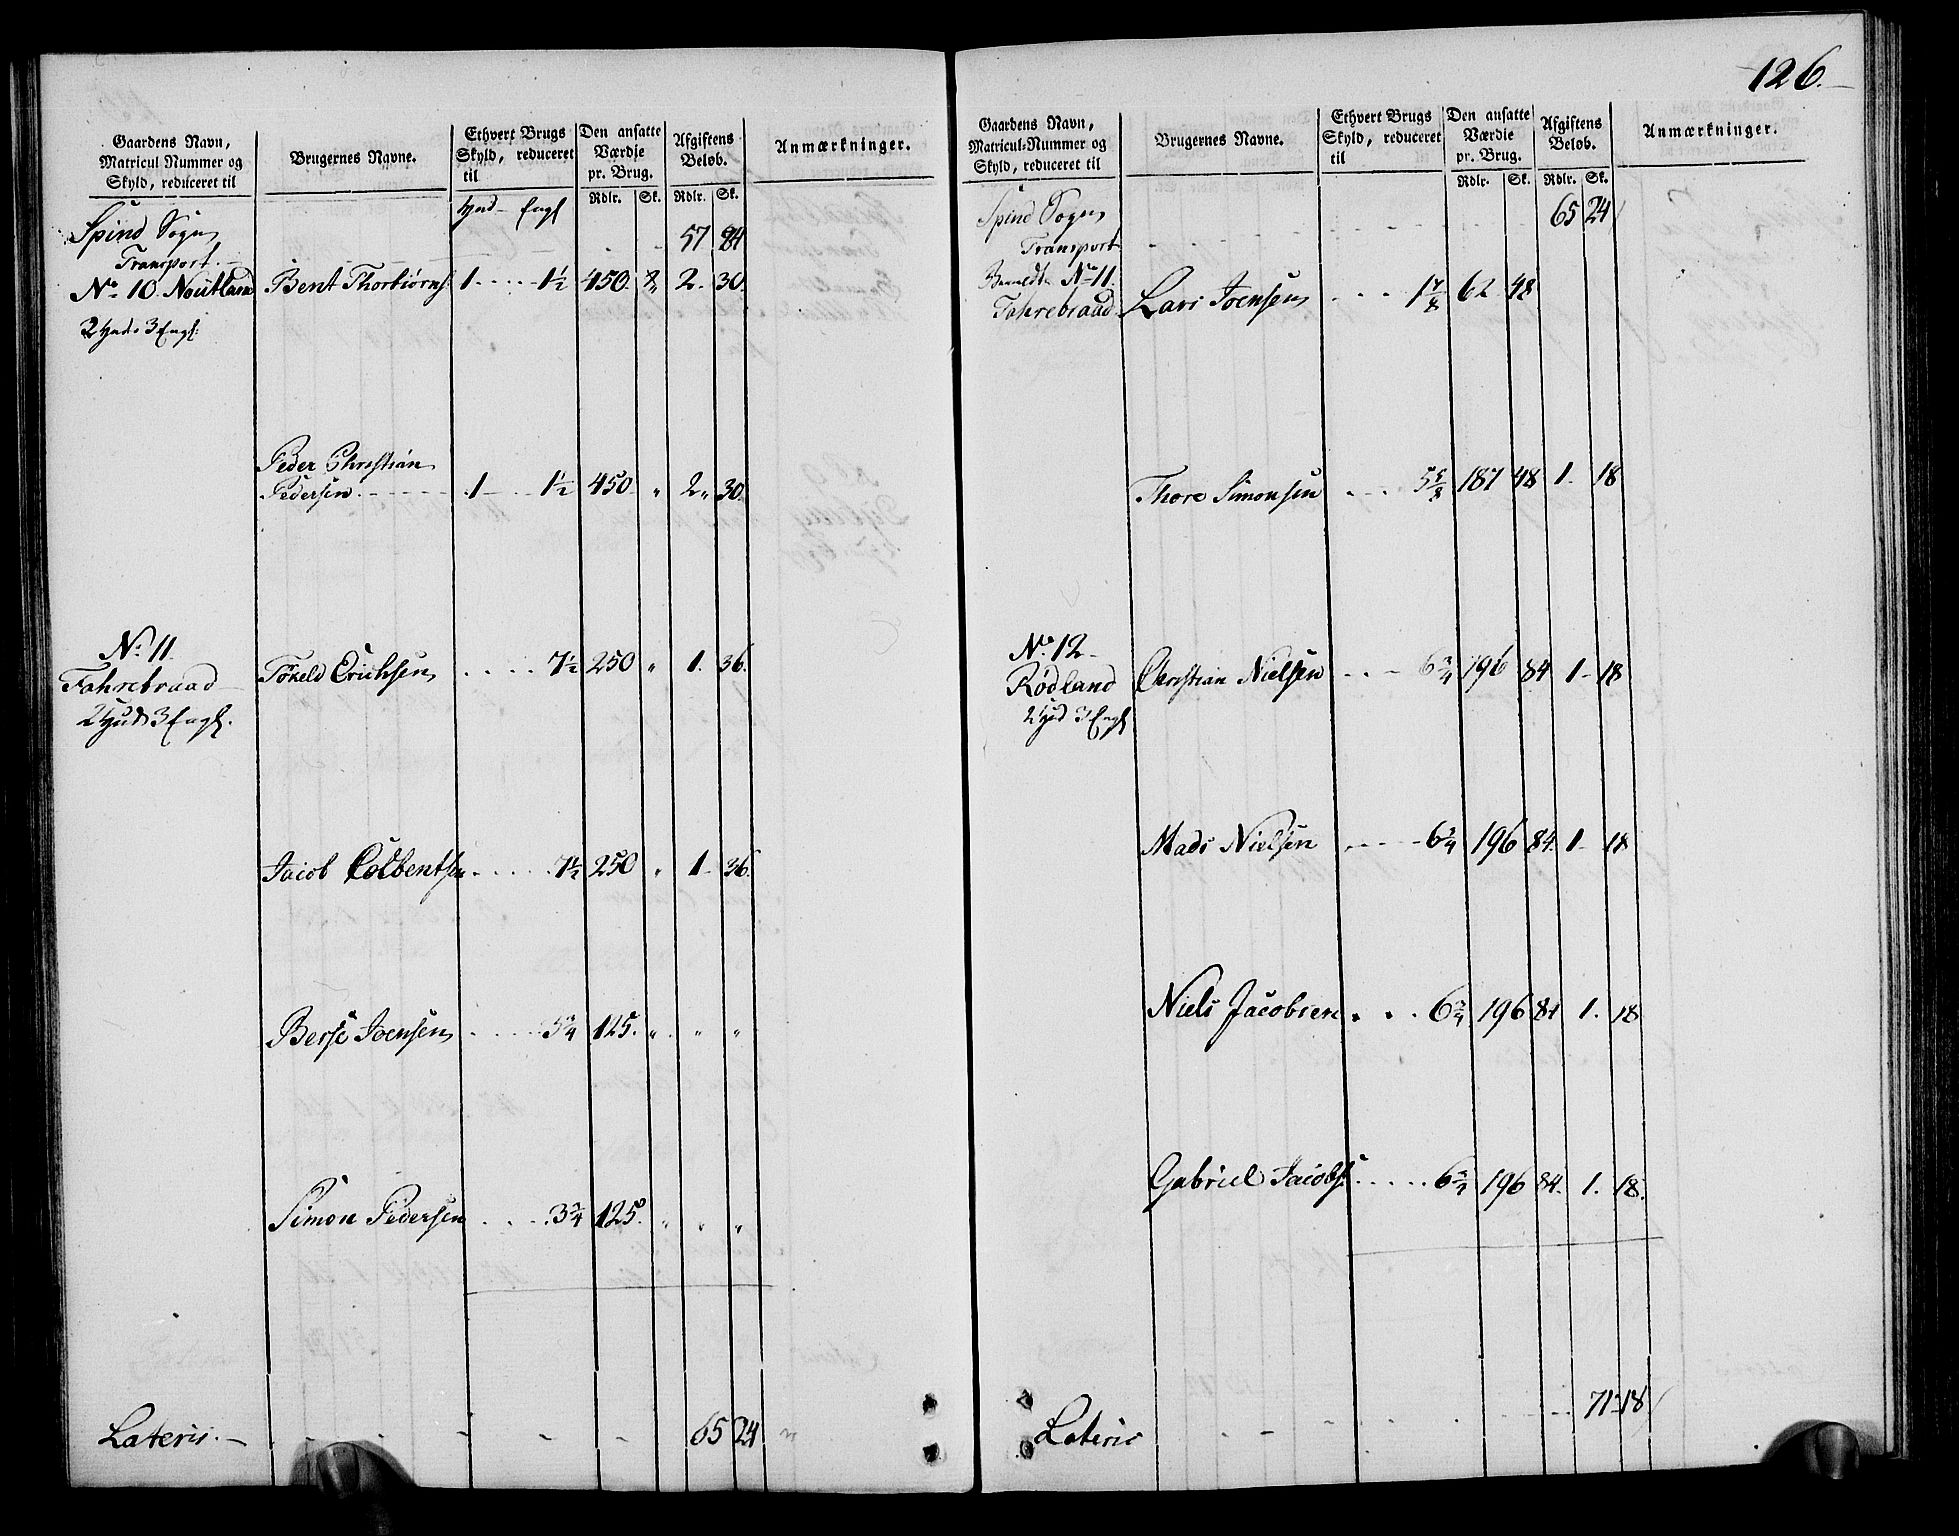 126.
Gaardens Navn, Matricul Nummer og Skyld, reduceret til
Brugernes Navne.
Ethvert Brugs Skyld, reduceret til
Den ansatte Værdie pr. Brug.
Afgiftens Beløb.
Anmærkninger.
Rdlr. Sk. Rdlr. Sk.
Spind Sogn
Transport. 57 84
No 10 Noutland Bent Thorbiørns: 1 1½ 450 2 30
2 Hud 3 Engl:
Peder Christian
Pedersen 1 1½ 450 " 2 " 30
No 11
Fahrebraad Tokeld Erichsen 7½ 250 " 1. 36.
2 Hud 3 Engl.
Jacob Colbentsen 7½ 250 " 1 36
Berse Joensen 3¾ 125 " " "
Simon Pedersen 3¾ 125. " " "
Lateris. 65 24
Gaardens Navn, Matricul-Nummer og Skyld, reduceret til
Brugernes Navne.
Ethvert Brugs Skyld, reduceret til
Den ansatte Værdie pr. Brug.
Afgiftens Beløb.
Anmærkninger.
Rdlr. Sk. Rdlr. Sk.
Spind Sogn
Transport 65 24
No 11.
Fahrebraad Lars Joensen 1⅞ 62 48
Thore Simonsen 5⅝ 187 48 1 18
No 12
Rødland Christian Nielsen 6¾ 196 84 1 18
2 Hud 3 Engl
Mads Nielsen 6¾ 196 84. 1 18
Niels Jacobsen 6¾ 196 84 1. 18
Gabriel Jacobs: 6¾ 196 84. 1. 18.
Lateris 71 18